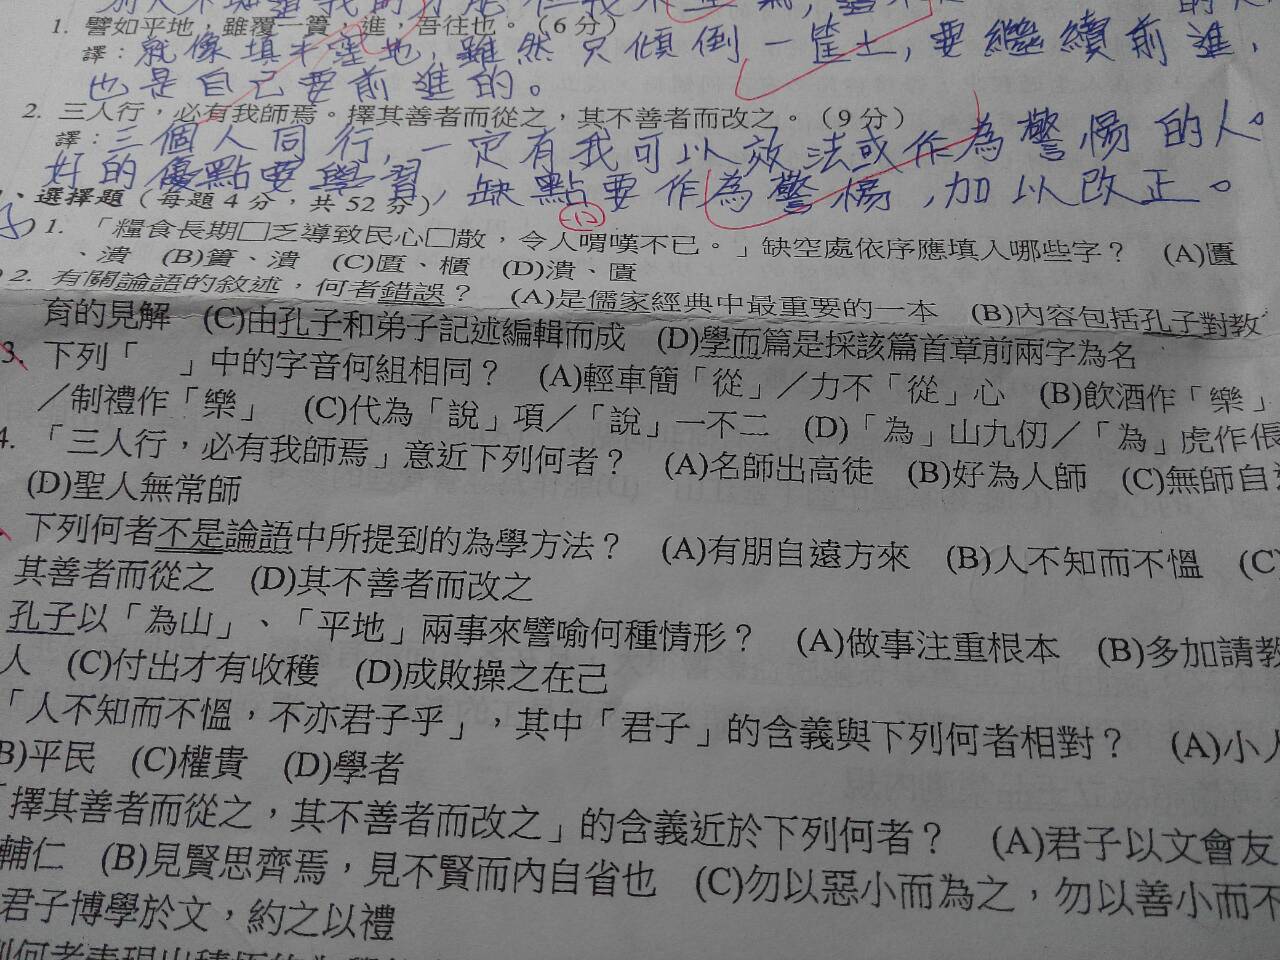 1. 譬如平地，雖覆一簣，進，吾往也。（6分）
譯：就像填平窪地，雖然只傾倒一筐土，要繼續前進，
也是自己要前進的。
2. 三人行，必有我師焉。擇其善者而從之，其不善者而改之。（9分）
譯：三個人同行，一定有我可以效法或作為警惕的人。
好的優點要學習，缺點要作為警惕，加以改正。
、選擇題（每題4分，共52分）
-12
) 1. 「糧食長期□乏導致民心□散，令人喟嘆不已。」缺空處依序應填入哪些字？ (A)匱
、潰 (B)簣、潰 (C)匱、櫃 (D)潰、匱
) 2. 有關論語的敘述，何者錯誤？ (A)是儒家經典中最重要的一本 (B)內容包括孔子對教
育的見解 (C)由孔子和弟子記述編輯而成 (D)學而篇是採該篇首章前兩字為名
3. 下列「　」中的字音何組相同？ (A)輕車簡「從」／力不「從」心 (B)飲酒作「樂」
／制禮作「樂」 (C)代為「說」項／「說」一不二 (D)「為」山九仞／「為」虎作倀
4. 「三人行，必有我師焉」意近下列何者？ (A)名師出高徒 (B)好為人師 (C)無師自
(D)聖人無常師
下列何者不是論語中所提到的為學方法？ (A)有朋自遠方來 (B)人不知而不慍 (C)
其善者而從之 (D)其不善者而改之
孔子以「為山」、「平地」兩事來譬喻何種情形？ (A)做事注重根本 (B)多加請教
人 (C)付出才有收穫 (D)成敗操之在己
「人不知而不慍，不亦君子乎」，其中「君子」的含義與下列何者相對？ (A)小人
B)平民 (C)權貴 (D)學者
「擇其善者而從之，其不善者而改之」的含義近於下列何者？ (A)君子以文會友
輔仁 (B)見賢思齊焉，見不賢而內自省也 (C)勿以惡小而為之，勿以善小而不
君子博學於文，約之以禮